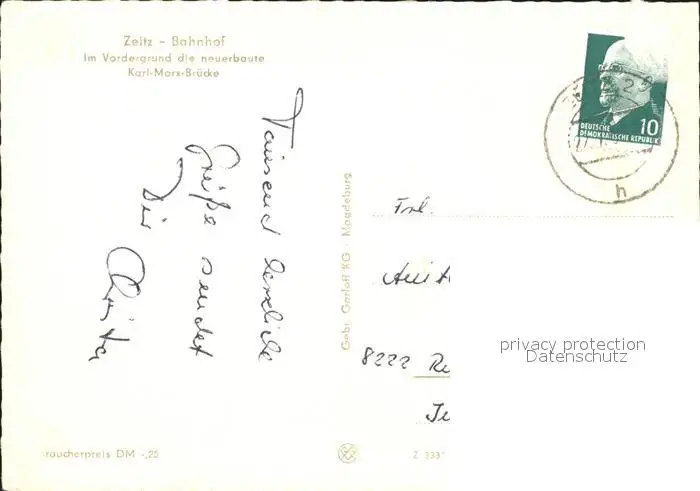 Zeitz - Bahnhof
Im Vordergrund die neuerbaute
Karl-Marx-Brücke
Tausend herzliche
Grüße sendet
Dir Christa
Gebr. Garloff KG · Magdeburg
DEUTSCHE
DEMOKRATISCHE REPUBLIK
10
h
Frl.
8222
privacy protection
Datenschutz
raucherpreis DM -,25
Z 333